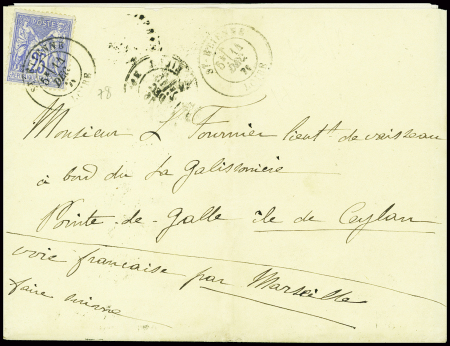 POSTE
25
ST ETIENNE
LOIRE
Monsieur L Fournier lieut.t de vaisseau
à bord du La Galissonière
Pointe-de-Galle île de Ceylan
voie française par Marseille
faire suivre
78